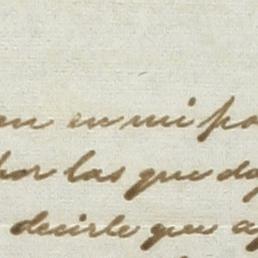 en en mi po
por las que do
decirle que a